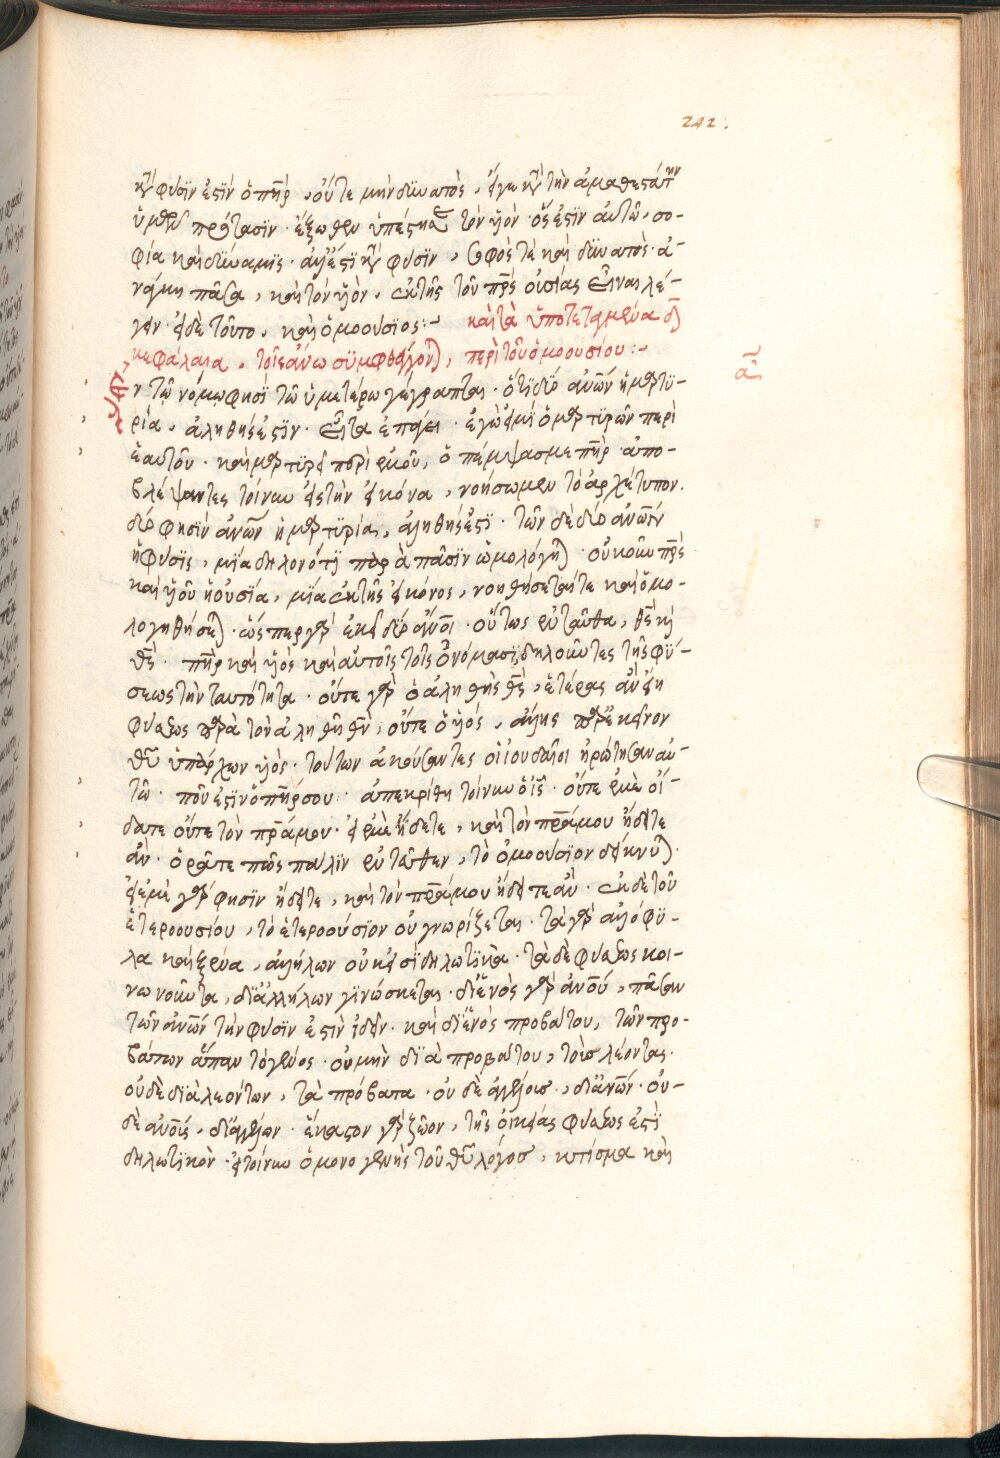 242.
κατὰ φύσιν ἐστὶν ὁ πὴρ, οὔτε μὴν δυνατὸς, εἴγε κατὰ τὴν ἀμαθεστάτην
ὑμῶν πρότασιν· ἔξωθεν ὑπέστησε τὸν υἱὸν· ὅς ἐστιν αὐτοῦ, σο-
φία καὶ δύναμις· ἀλλ' ἔστι κατὰ φύσιν, σοφός τε καὶ δυνατὸς· ἀ-
νάγκη πᾶσα, καὶ τὸν υἱὸν, ἐκ τῆς τοῦ πρς οὐσίας εἶναι λέ-
γειν· εἰ δὲ τοῦτο, καὶ ὁμοούσιος:- καὶ τὰ ὑποτεταγμένα δὲ
κεφάλαια, τοῖς ἄνω συμφθέγγονται, περὶ τοῦ ὁμοουσίου:-
α
ἐν τῷ νόμῳ φησὶ τῷ ὑμετέρῳ γέγραπται· ὅτι δύο ἀνων ἡ μαρτυ-
ρία, ἀληθής ἐστιν· εἶτα ἐπάγει· ἐγώ εἰμι ὁ μαρτυρῶν περὶ
ἑαυτοῦ· καὶ μαρτυρεῖ περὶ ἐμοῦ, ὁ πέμψας με πὴρ· ἀπο-
βλέψαντες τοίνυν εἰς τὴν εἰκόνα, νοήσωμεν τὸ ἀρχέτυπον.
δύο φησὶν ἀνων ἡ μαρτυρία, ἀληθής ἐστι· τῶν δὲ δύο ἀνων
ἡ φύσις, μία δηλονότι παρὰ πᾶσιν ὡμολόγηται· οὐκοῦν πρς
καὶ υἱοῦ ἡ οὐσία, μία ἐκ τῆς εἰκόνος, νοηθήσεταί τε καὶ ὁμο-
λογηθήσεται· ὥσπερ γὰρ ἐκεῖ δύο ἀνοι· οὕτως ἐνταῦθα, θς καὶ
θς· πὴρ καὶ υἱὸς καὶ αὐτοῖς τοῖς ὀνόμασι, δηλοῦντες τῆς φύ-
σεως τὴν ταυτότητα· οὔτε γὰρ ὁ ἀληθὴς θς, ἑτέρας ἂν εἴη
φύσεως παρὰ τὸν ἀληθῆ θν, οὔτε ὁ υἱός, ἄλλης παρ' ἐκεῖνον
θῦ ὑπάρχων υἱὸς· τούτων ἀκούσαντες οἱ ἰουδαῖοι ἠρώτησαν αὐ-
τῶ· ποῦ ἐστιν ὁ πήρ σου· ἀπεκρίθη τοίνυν ὁ ις· οὔτε ἐμὲ οἴ-
δατε οὔτε τὸν πρα μου· εἰ ἐμὲ ᾔδειτε, καὶ τὸν πρα μου ᾔδειτε
ἄν· ὁρᾶτε πῶς πάλιν ἐνταῦθεν, τὸ ὁμοούσιον δείκνυται.
εἰ ἐμὲ γάρ φησιν ᾔδειτε, καὶ τὸν πρα μου ᾔδειτε ἄν· ἐκ δὲ τοῦ
ἑτεροουσίου, τὸ ἑτεροούσιον οὐ γνωρίζεται· τὰ γὰρ ἀλλόφυ-
λα καὶ ξένα, ἀλλήλων οὐκ εἰσὶ δηλωτικὰ· τὰ δὲ φύσεως κοι-
νωνοῦντα, δι' ἀλλήλων γινώσκεται· δι' ἑνὸς γὰρ ἀνου, πᾶσαν
τῶν ἀνων τὴν φύσιν ἐστὶν ἰδεῖν· καὶ δι' ἑνὸς προβάτου, τῶν προ-
βάτων ἅπαν τὸ γένος· οὐ μὴν διὰ προβάτου, τοὺς λέοντας·
οὐδὲ διὰ λεόντων, τὰ πρόβατα· οὐδὲ ἀγγέλους, δι' ἀνων· οὐ-
δὲ ἀνους, δι' ἀγγέλων· ἕκαστον γὰρ ζῶον, τῆς οἰκείας φύσεως ἐστὶ
δηλωτικὸν· εἰ τοίνυν ὁ μονογενὴς τοῦ θῦ λόγος, κτίσμα καὶ